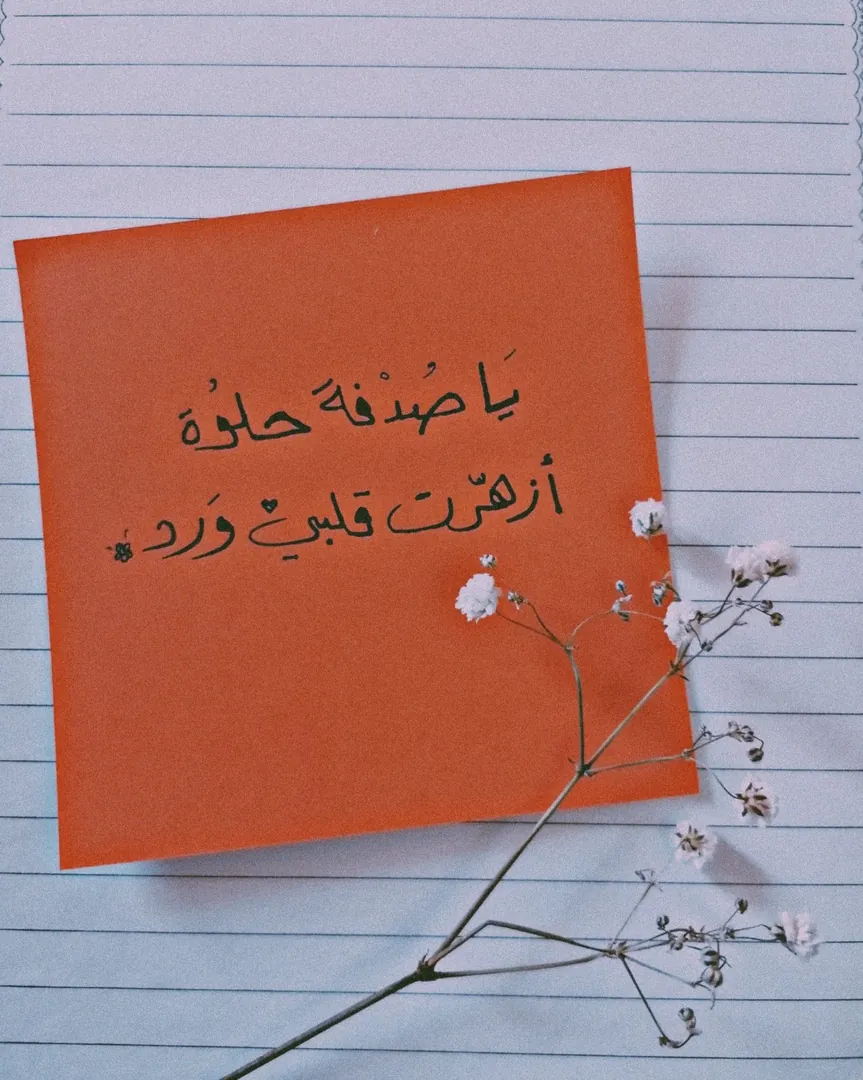 يَا صُدْفةَ حلوُة
أزهّرت قلبيْ وَرد